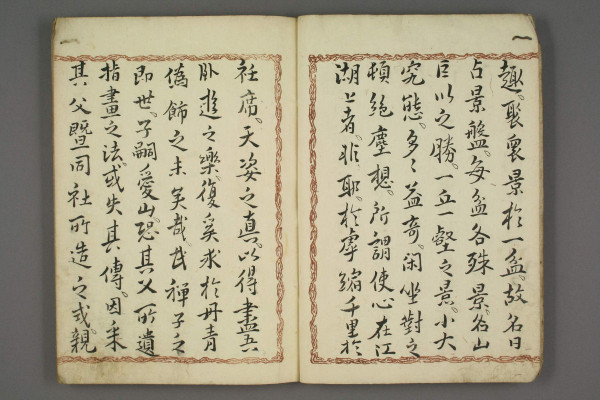 趣。聚衆景於一盆。故名曰
占景盤。每盆各殊景。名山
巨川之勝。一丘一壑之景。小大
究態。多々益奇。閑坐對之
頓絶塵想。所謂使心在江
湖上者。非耶。於虖縮千里於
衽席。天姿之真。以得盡吾
卧遊之樂。復奚求於丹青
偽飾之末矣哉。民禪子之
即世。子嗣愛山。恐其父所遺
指畫之法。或失其傳。因采
其父曁同社所造之式。親